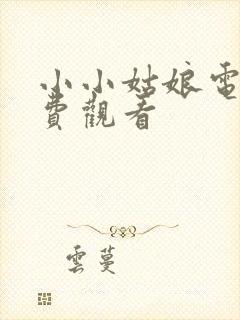 小小姑娘電
費觀看
雲蔓